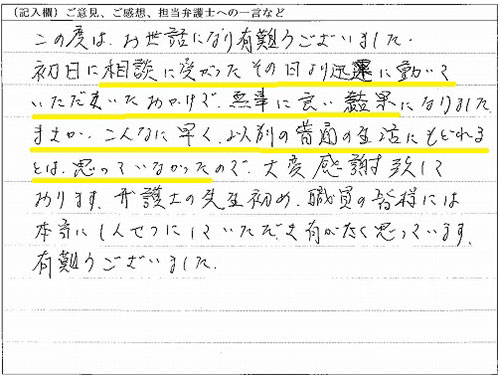 （記入欄）ご意見、ご感想、担当弁護士への一言など
この度は、お世話になり有難うございました.
初日に相談に受かったその日より迅速に動いて
いただきいたおかげで、無事に良い結果になりました
ますが、こんなに早く、以前の普通の生活にもどれる
とは、思っていなかったので、大変感謝致して
おります、弁護士の先生初め、職員の皆様には
本当にしんせつにしていただき有がたく思っています、
有難うございました.